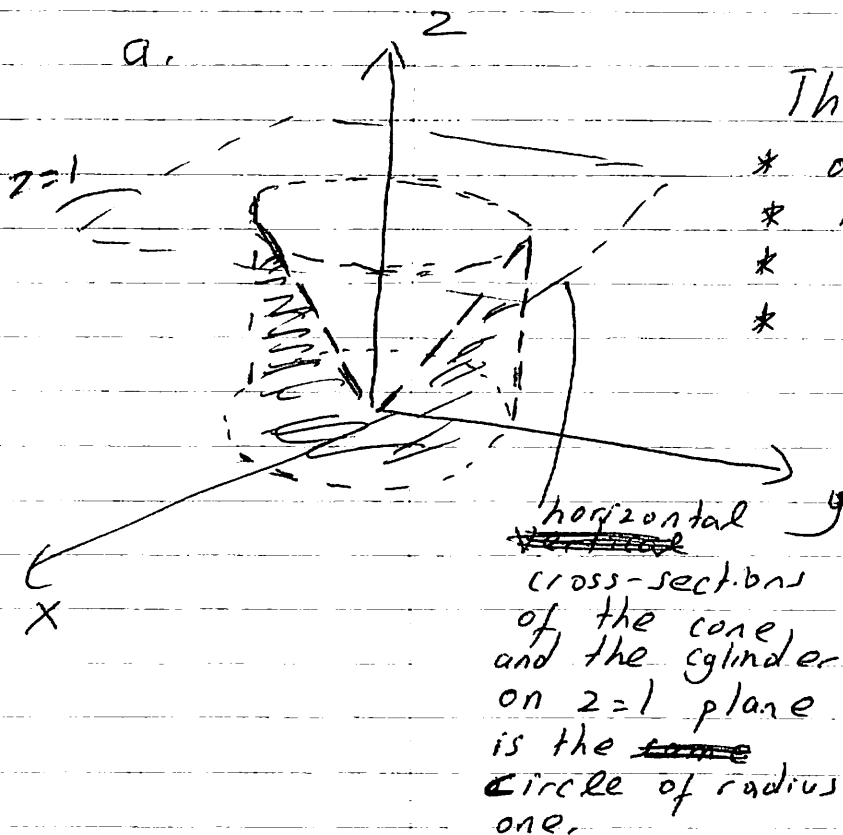 a.
z
Th
z=1
* 
* 
*
*
y
horizontal
cross-sections
of the cone
and the cylinder
on z=1 plane
is the
circle of radius
one.
x